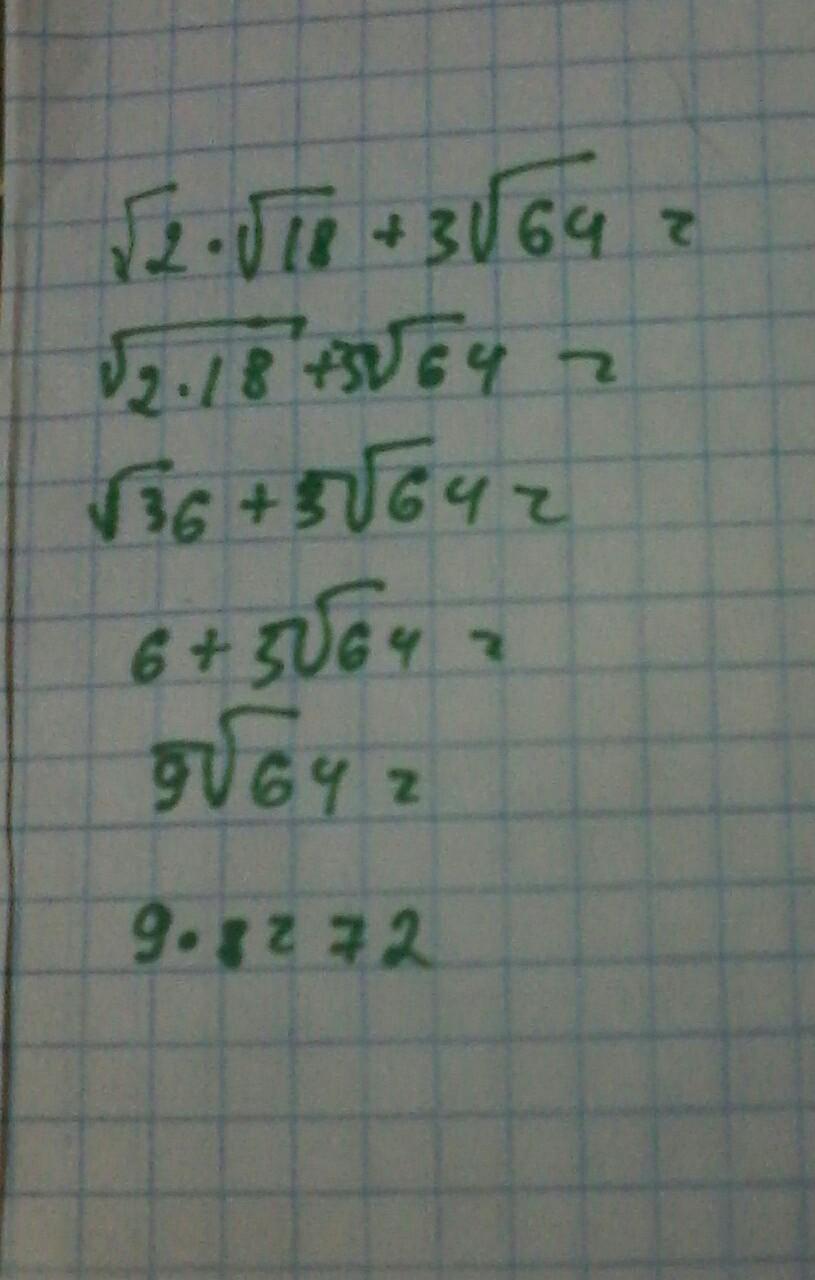 √2 · √18 + 3√64 =
√2·18 + 3√64 =
√36 + 3√64 =
6 + 3√64 =
9√64 =
9·8 = 72